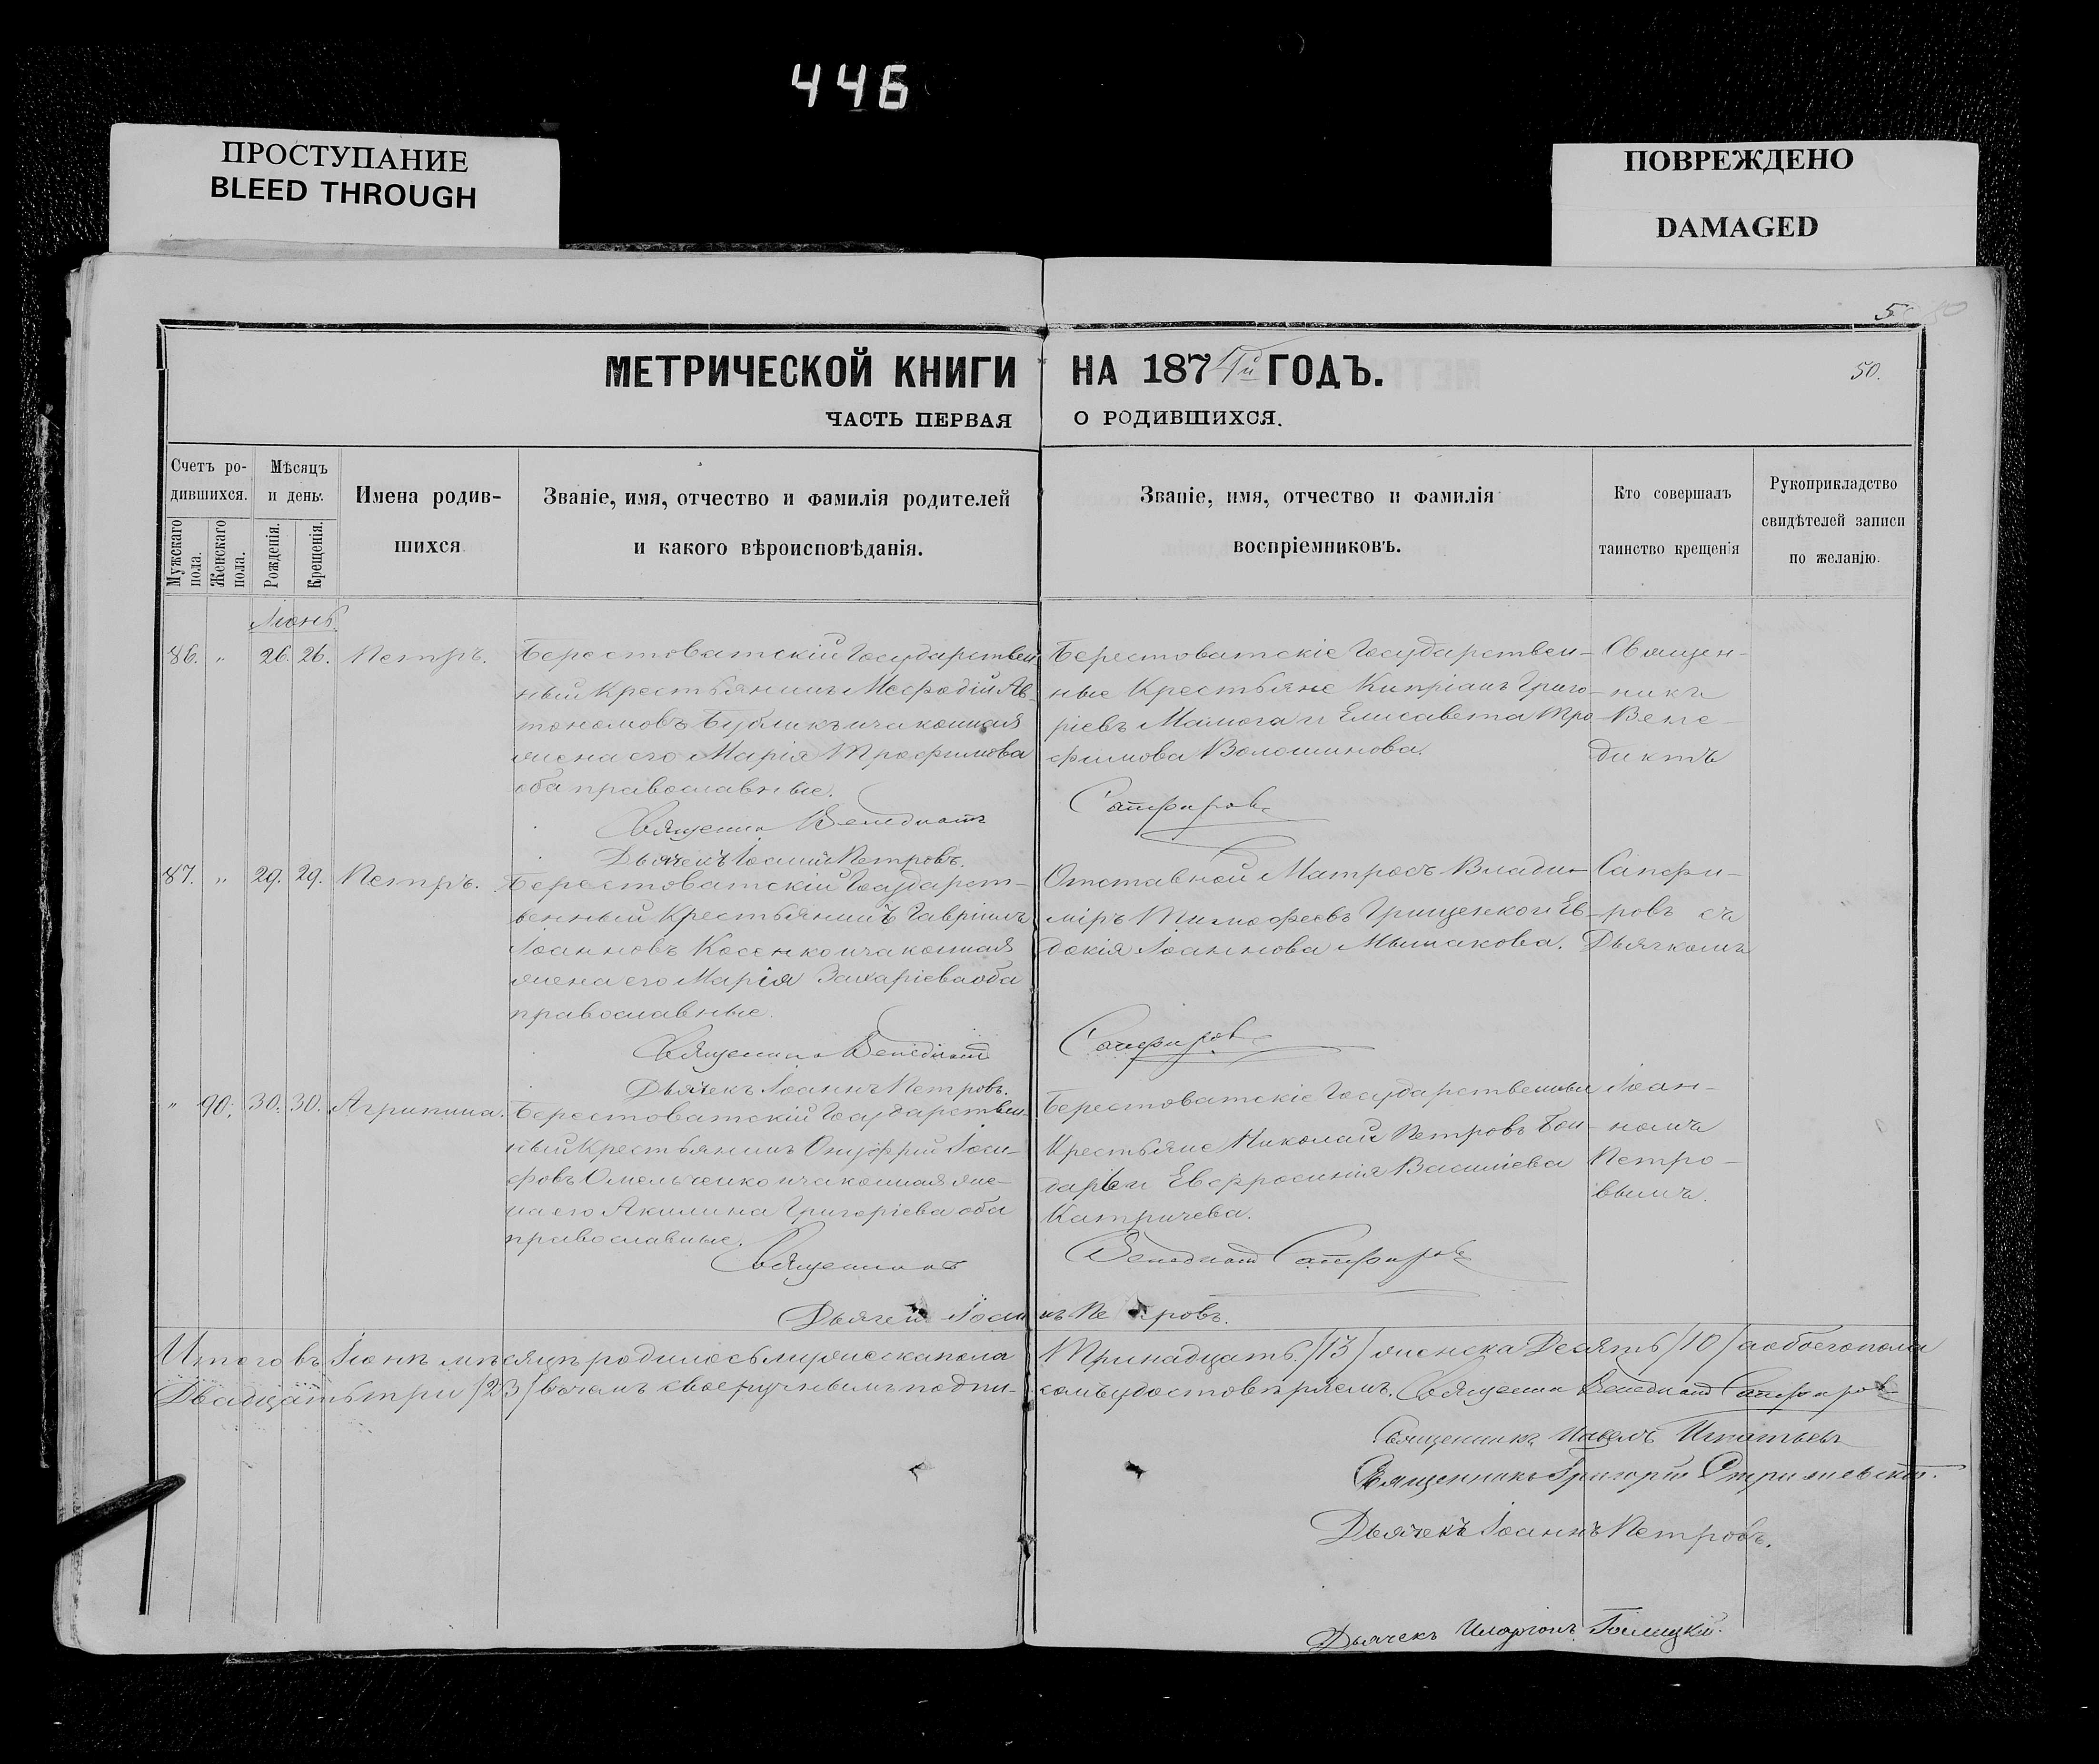 446
ПРОСТУПАНИЕ
BLEED THROUGH
ПОВРЕЖДЕНО
DAMAGED
5
50.
МЕТРИЧЕСКОЙ КНИГИ НА 1874й ГОДЪ.
ЧАСТЬ ПЕРВАЯ О РОДИВШИХСЯ.
Счетъ ро-
дившихся.
Мужскаго пола.
Женскаго пола.
Мѣсяцъ
и день.
Рожденія.
Крещенія.
Имена родив-
шихся
Званіе, имя, отчество и фамилія родителей
и какого вѣроисповѣданія.
Званіе, имя, отчество и фамилія
воспріемниковъ.
Кто совершалъ
таинство крещенія
Рукоприкладство
свидѣтелей записи
по желанію.
Іюнь
86. " 26. 26. Петръ.
Берестоватскій Государствен
ный Крестьянинъ Меѳодій Ав
тономовъ Бубликъ и законная
жена его Марія Трофимова
оба православные.
Священникъ Венедиктъ
Дьячекъ Іоаннъ Петровъ.
Берестоватскіе Государствен-
ные Крестьяне Кипріанъ Григо-
ріевъ Мамога и Елисавета Тро
фимова Волошинова.
Сапфировъ
Священ-
никъ
Вене-
диктъ
87. " 29. 29. Петръ.
Берестоватскій Государст-
венный Крестьянинъ Гавріилъ
Іоанновъ Косенко и законная
жена его Марія Захаріева оба
православные.
Священникъ Венедиктъ
Дьячекъ Іоаннъ Петровъ.
Отставной Матросъ Влади-
міръ Тимофеевъ Грищенко и Ев-
докія Іоаннова Мышакова.
Сапфировъ
Сапфи-
ровъ съ
Дьячкомъ
" 90. 30. 30. Агрипина.
Берестоватскій Государствен-
ный Крестьянинъ Онуфрій Іоси-
фовъ Омельченко и законная же-
на его Акилина Григоріева оба
православные.
Священникъ
Берестоватскіе Государственные
Крестьяне Николай Петровъ Бон-
дарь и Евфросинія Василіева
Катричева.
Венедиктъ Сапфировъ
Іоан-
номъ
Петро-
вымъ.
Дьячекъ Іоаннъ Петровъ.
Итого въ Іюнѣ мѣсяцѣ родилось мужеска пола Тринадцать /13/ женска Десять /10/ а обоего пола
Двадцать три /23/ въ чемъ своеручнымъ подпи- сомъ удостовѣряемъ. Священникъ Венедиктъ Сапфировъ
Священникъ Павелъ Игнатьевъ
Священникъ Григорій
Дьячекъ Іоаннъ Петровъ.
Дьячекъ Иларіонъ